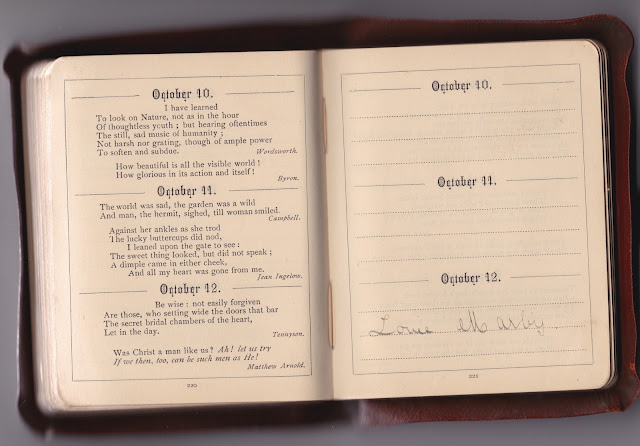 October 10.
I have learned
To look on Nature, not as in the hour
Of thoughtless youth ; but hearing oftentimes
The still, sad music of humanity ;
Not harsh nor grating, though of ample power
To soften and subdue. Wordsworth.
How beautiful is all the visible world !
How glorious in its action and itself !
Byron.
October 11.
The world was sad, the garden was a wild
And man, the hermit, sighed, till woman smiled.
Campbell.
Against her ankles as she trod
The lucky buttercups did nod,
I leaned upon the gate to see :
The sweet thing looked, but did not speak ;
A dimple came in either cheek,
And all my heart was gone from me.
Jean Ingelow.
October 12.
Be wise : not easily forgiven
Are those, who setting wide the doors that bar
The secret bridal chambers of the heart,
Let in the day. Tennyson.
Was Christ a man like us ? Ah! let us try
If we then, too, can be such men as He!
Matthew Arnold.
220
October 10.
October 11.
October 12.
Louie Marby
221